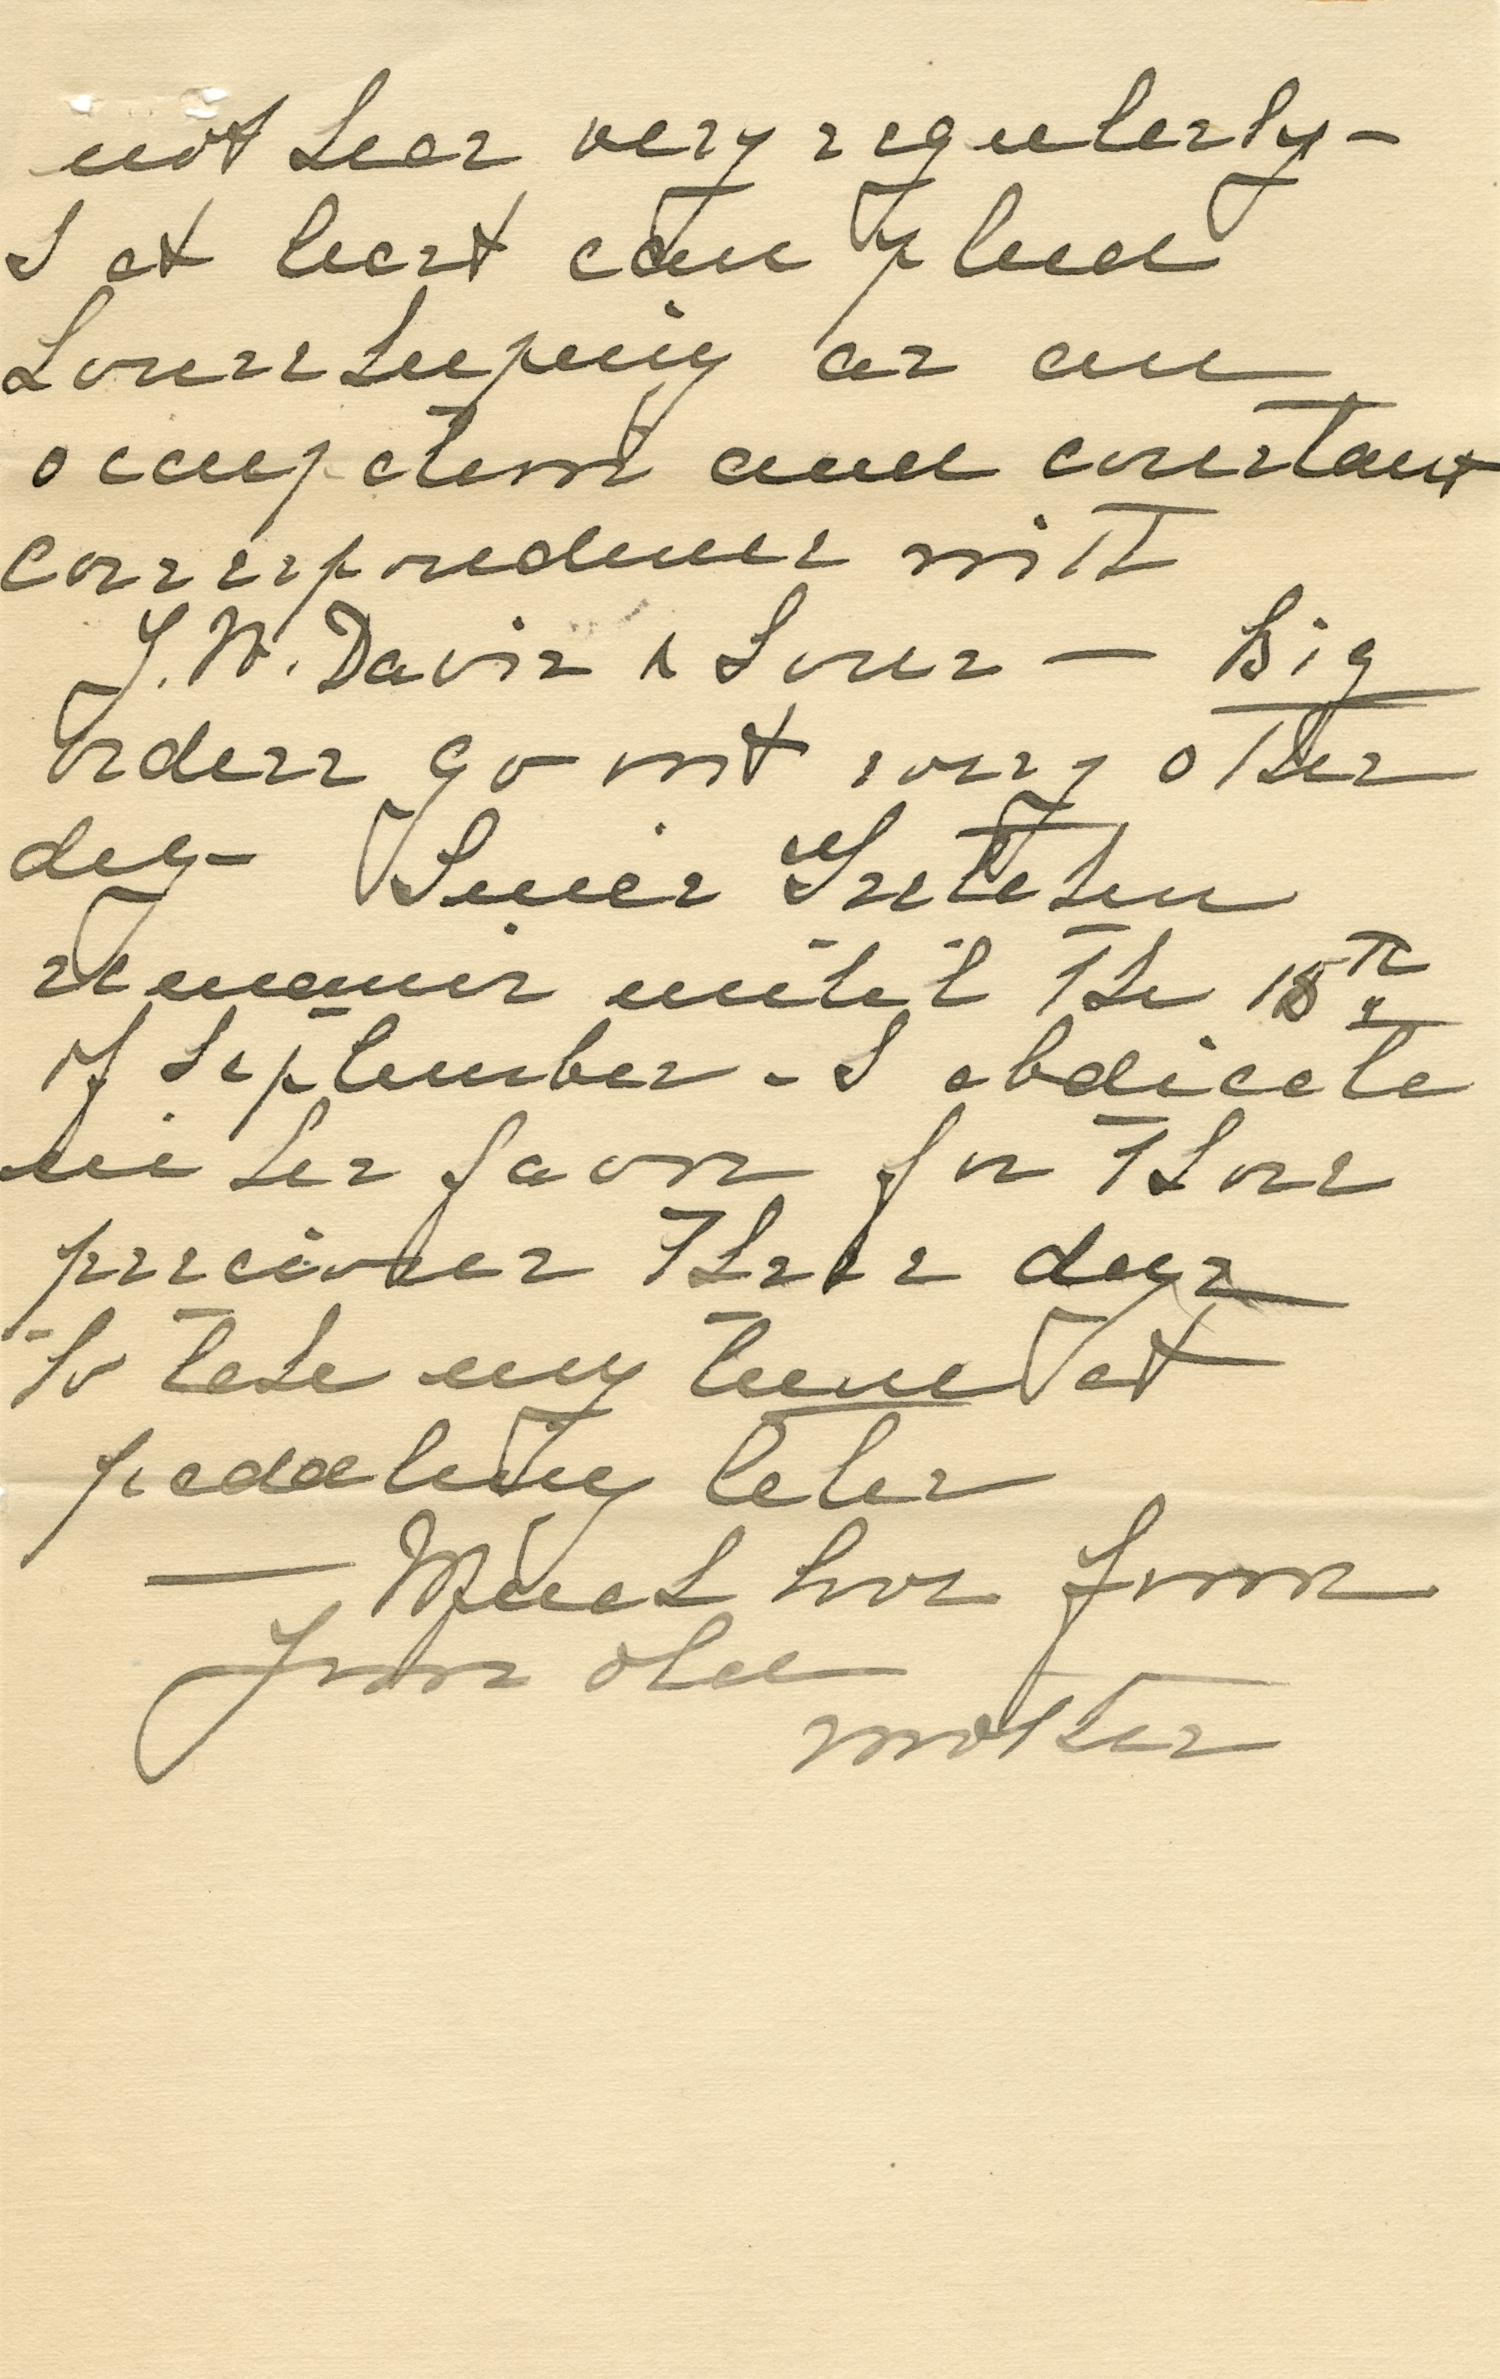 not hear very regularly -
I at least can plead
housekeeping as an
occupation and constant
correspondence with
T. W. Davis & Sons — Big
orders go out every other
day - Since Gretchen
remains until the 15th
of September - I abdicate
in her favor for those
precious three days
to take my turn at
pedaling later
— Much love from
Your old
mother